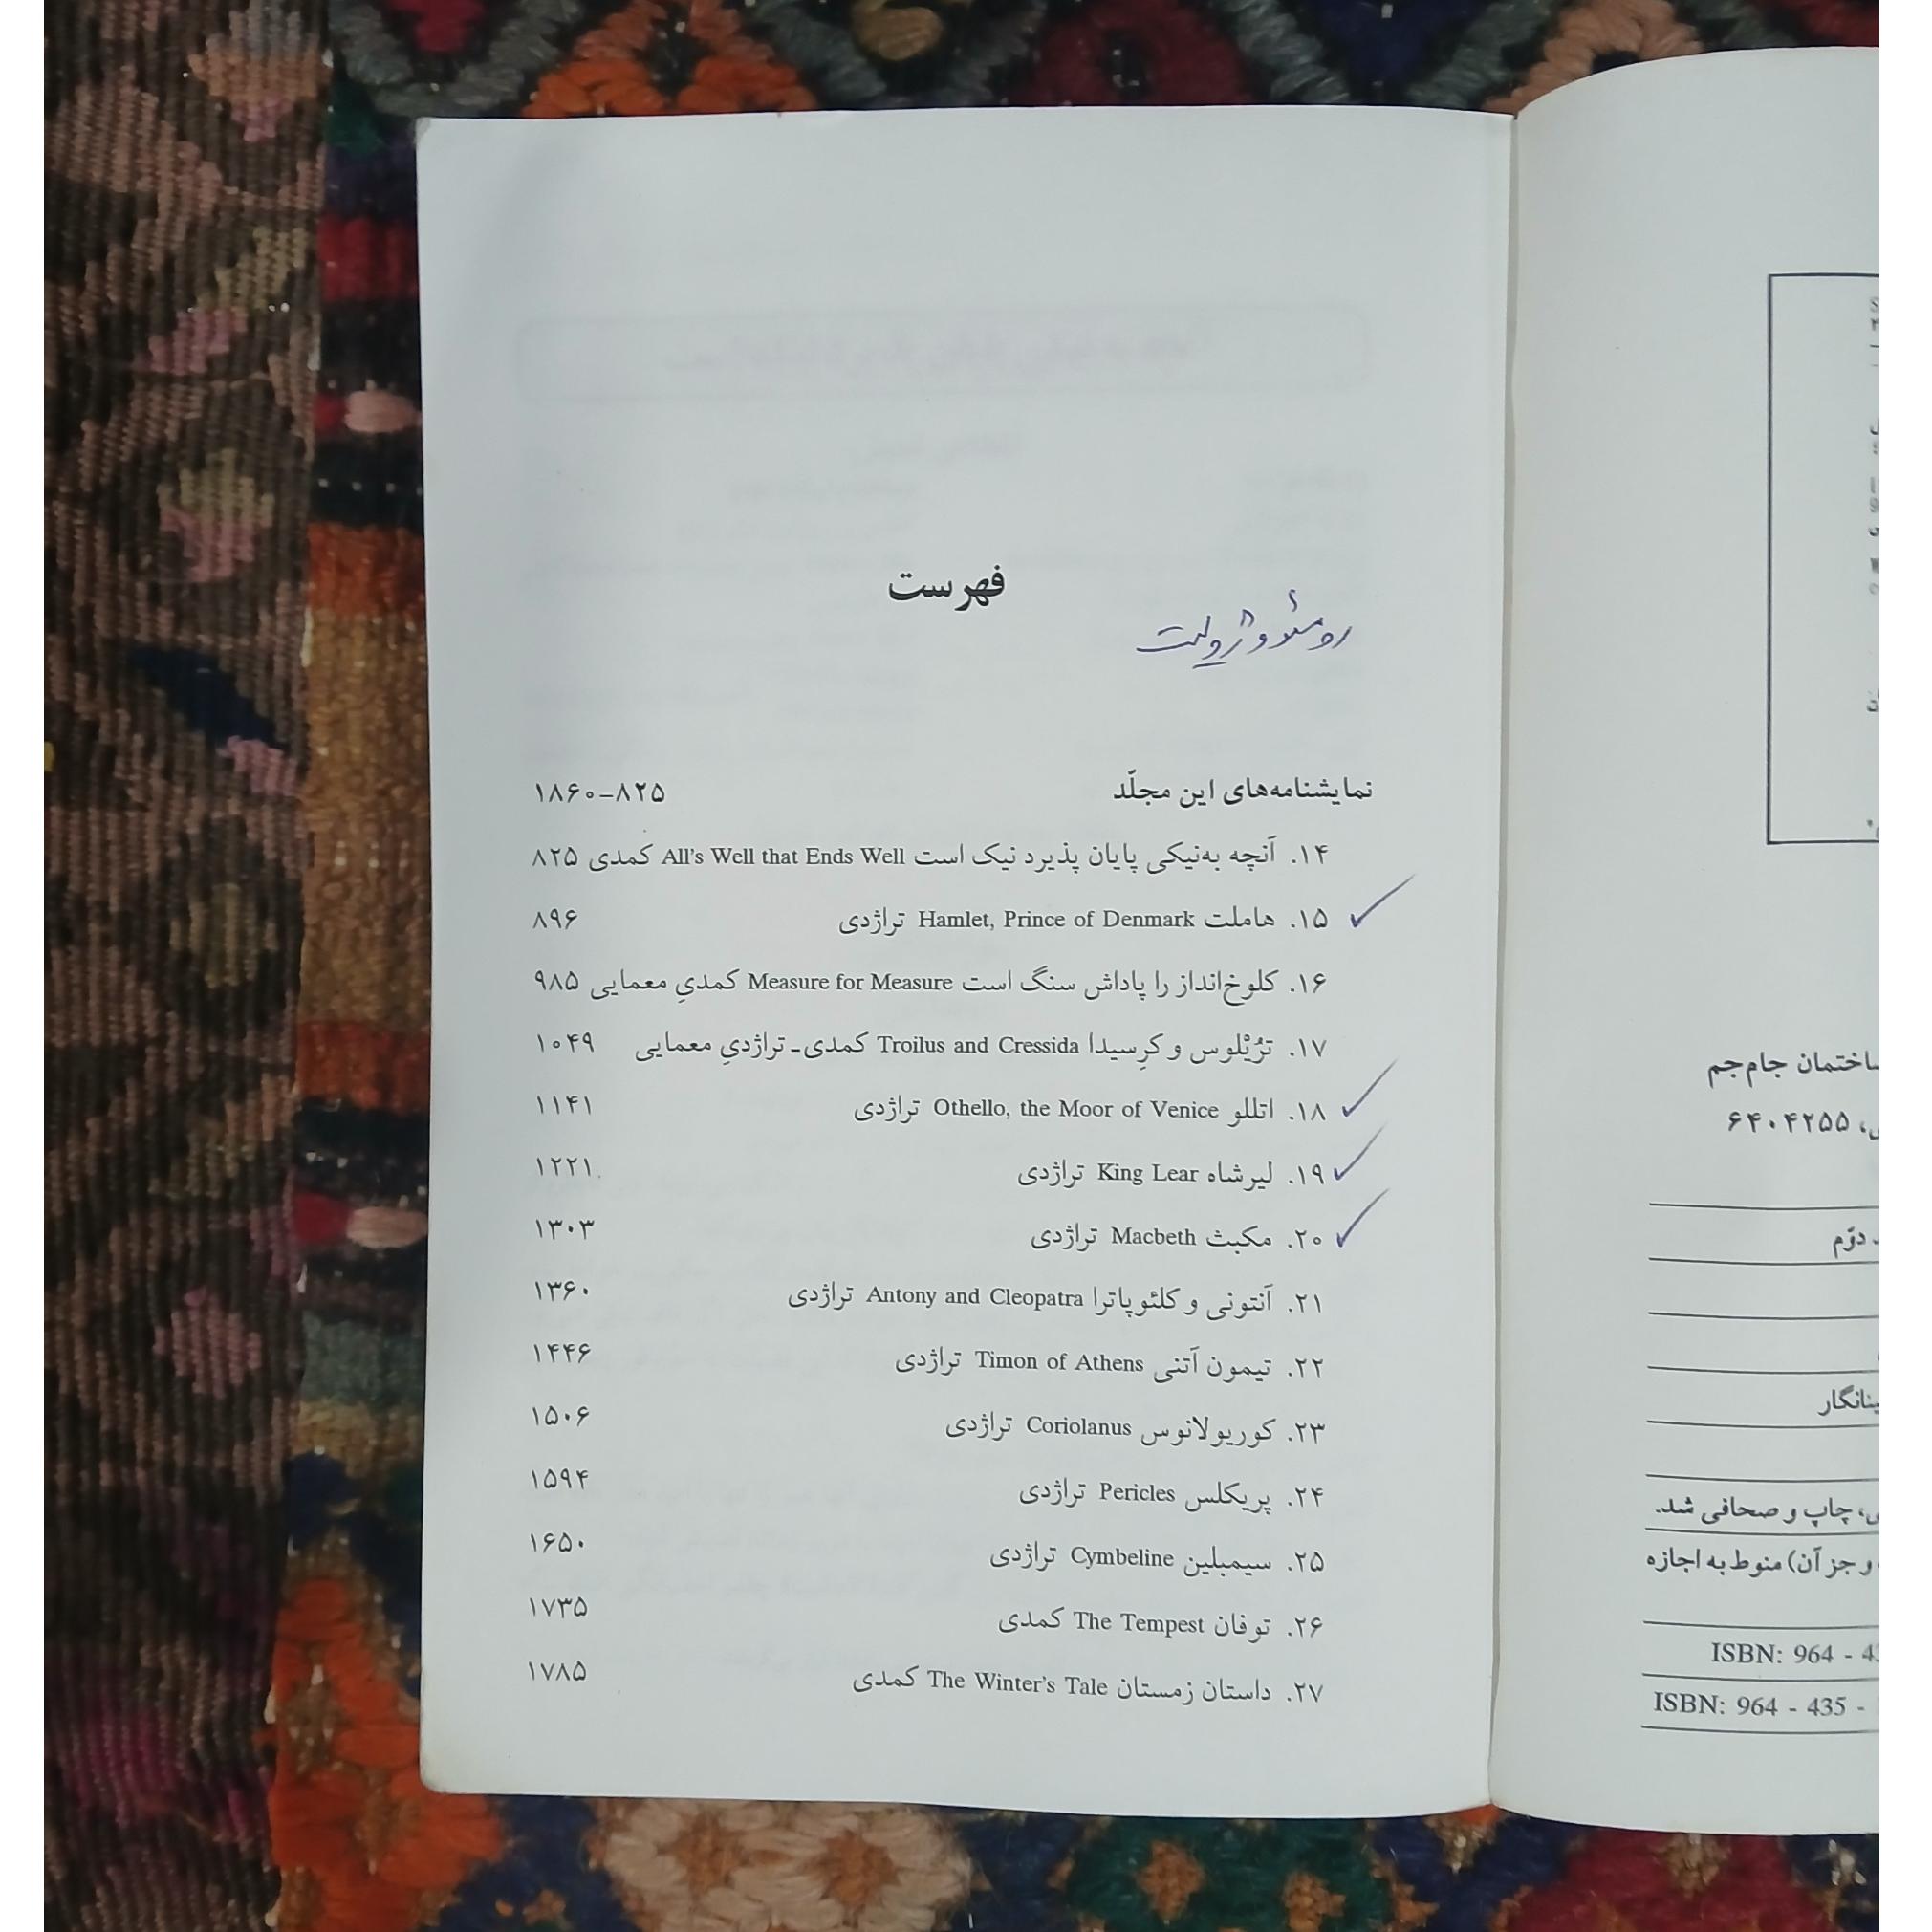 فهرست
رومئو و ژولیت
نمایشنامه‌های این مجلّد ۸۲۵–۱۸۶۰
۱۴. آنچه به‌نیکی پایان پذیرد نیک است All's Well that Ends Well کمدی ۸۲۵
۱۵. هاملت Hamlet, Prince of Denmark تراژدی ۸۹۶
۱۶. کلوخ‌انداز را پاداش سنگ است Measure for Measure کمدیِ معمایی ۹۸۵
۱۷. ترُیْلوس و کرِسیدا Troilus and Cressida کمدی ـ تراژدیِ معمایی ۱۰۴۹
۱۸. اتللو Othello, the Moor of Venice تراژدی ۱۱۴۱
۱۹. لیرشاه King Lear تراژدی ۱۲۲۱
۲۰. مکبث Macbeth تراژدی ۱۳۰۳
۲۱. آنتونی و کلئوپاترا Antony and Cleopatra تراژدی ۱۳۶۰
۲۲. تیمون آتنی Timon of Athens تراژدی ۱۴۴۶
۲۳. کوریولانوس Coriolanus تراژدی ۱۵۰۶
۲۴. پریکلس Pericles تراژدی ۱۵۹۴
۲۵. سیمبلین Cymbeline تراژدی ۱۶۵۰
۲۶. توفان The Tempest کمدی ۱۷۳۵
۲۷. داستان زمستان The Winter's Tale کمدی ۱۷۸۵
جام‌جم
۶۴۰۴۲۵۵
دوّم
چاپ و صحافی شد.
و جز آن) منوط به اجازه
ISBN: 964 - 4
ISBN: 964 - 435 -